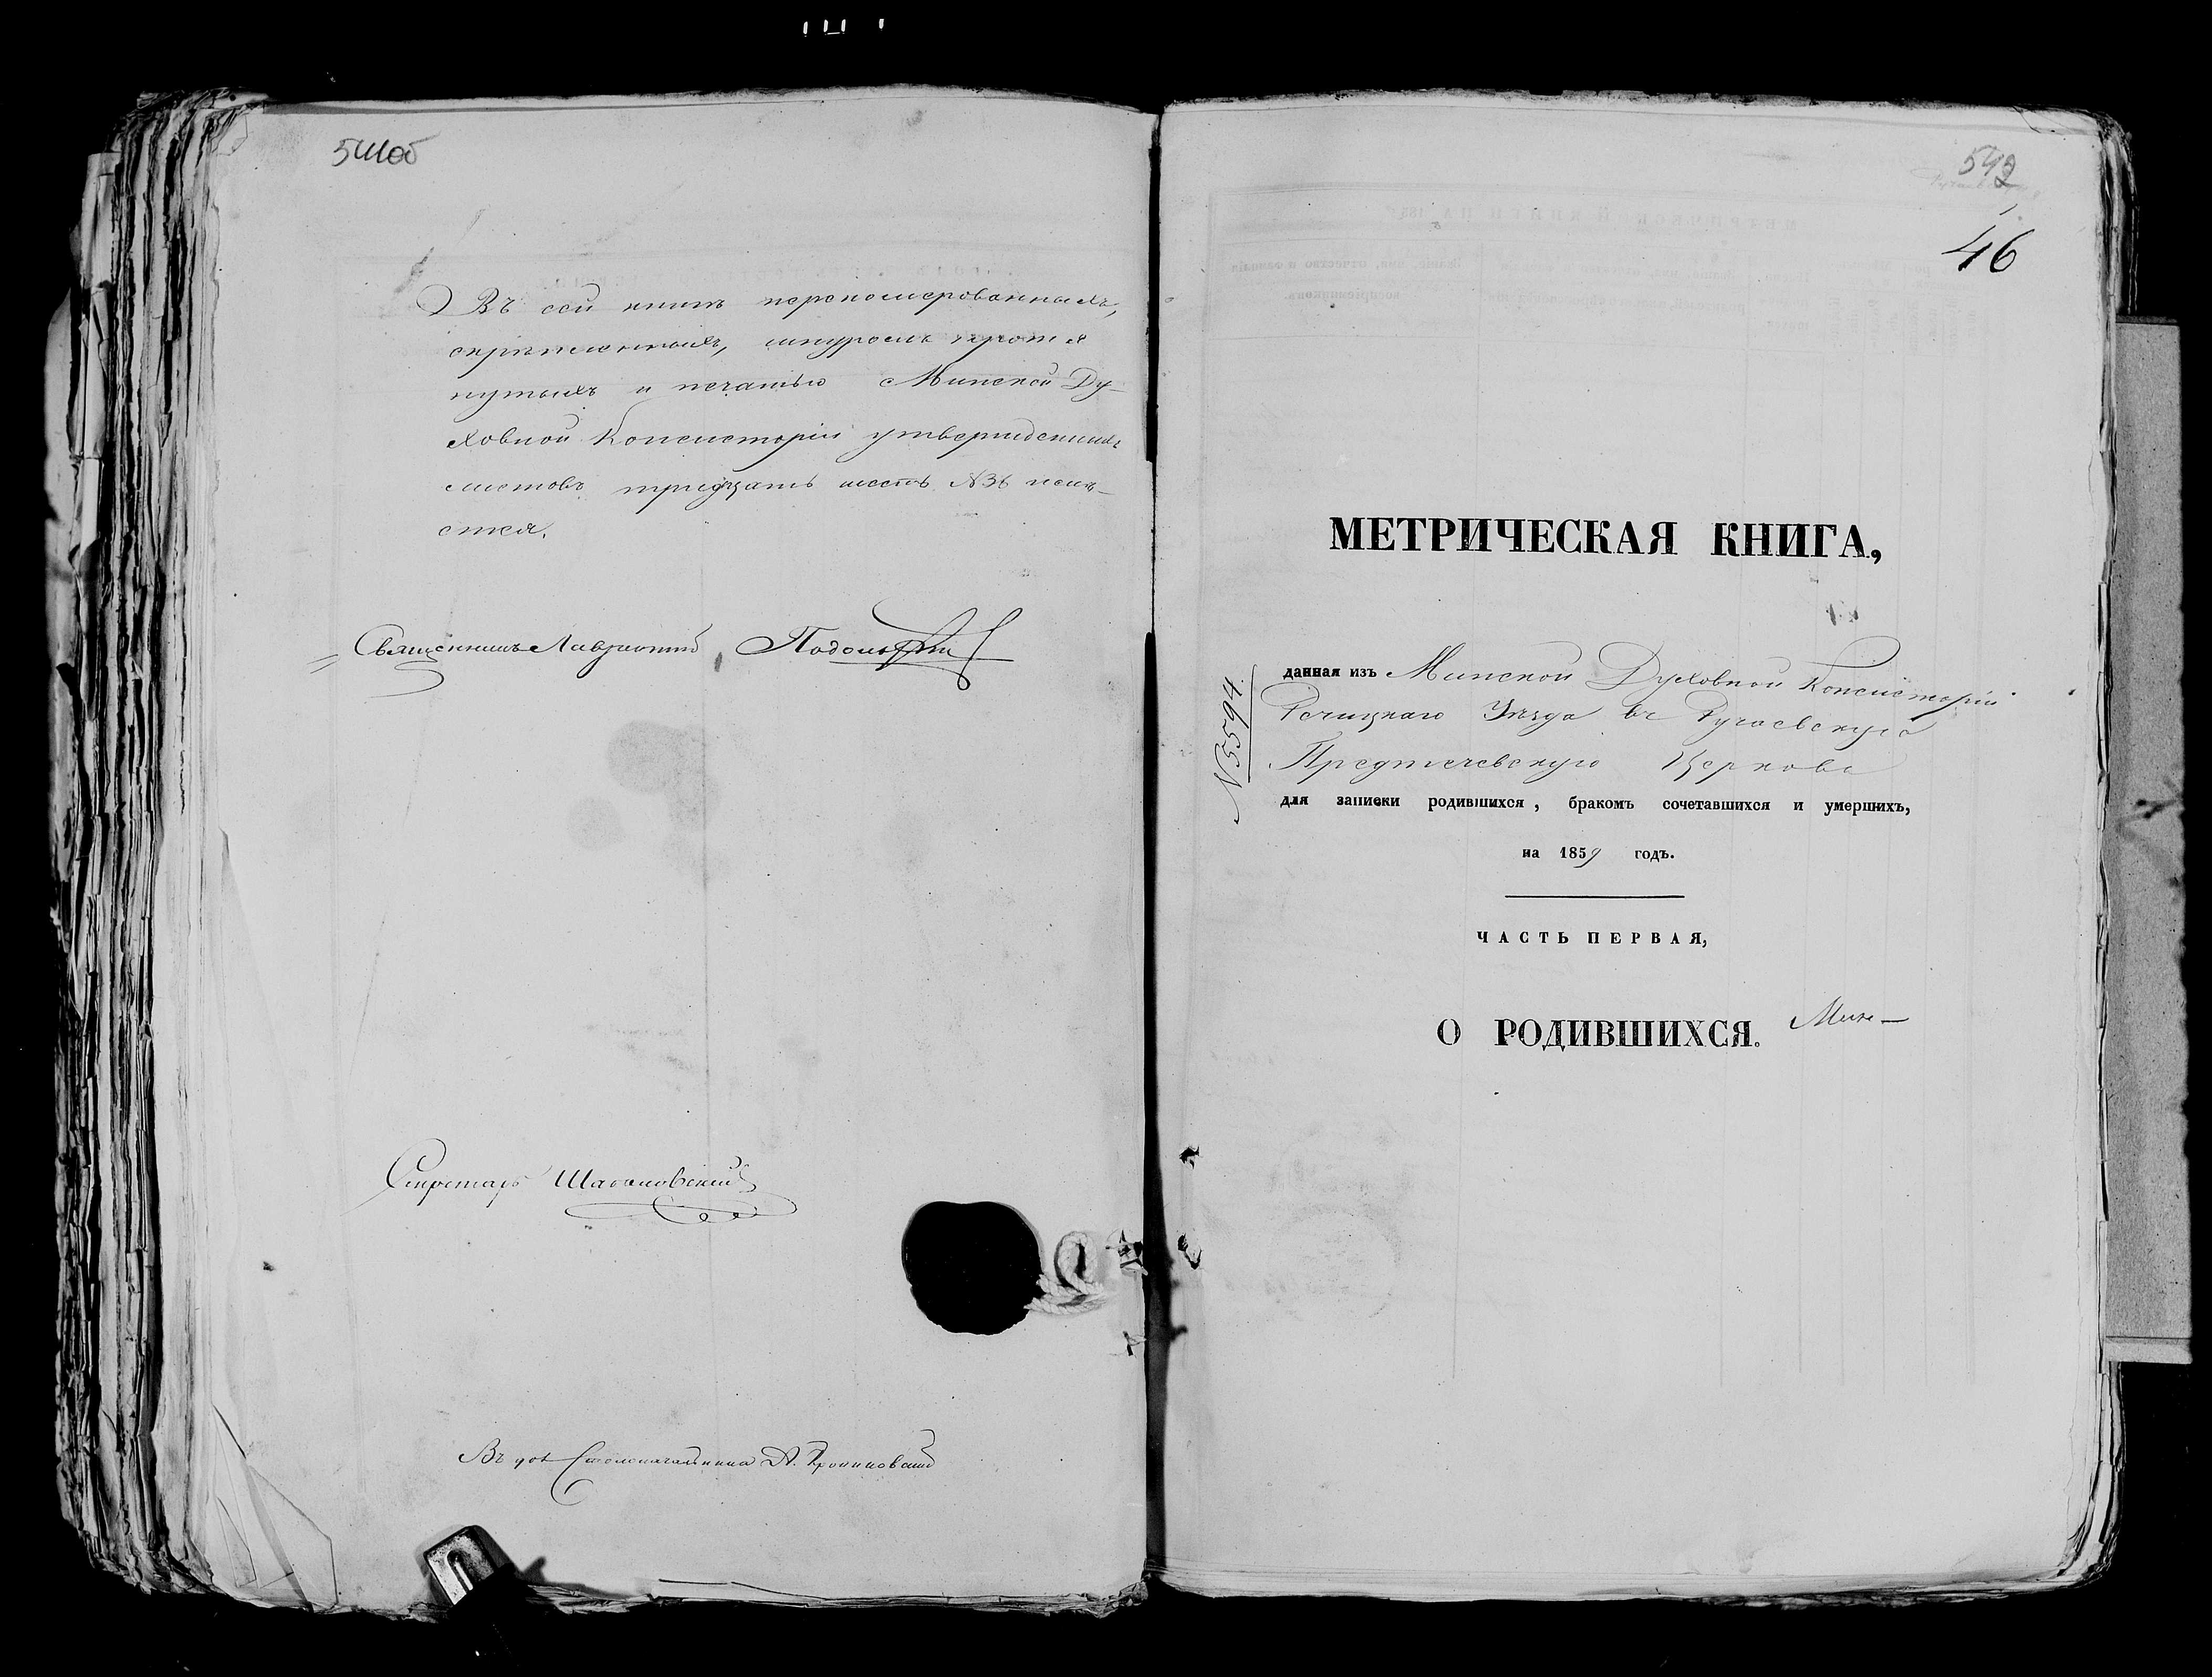 541об
Въ сей книгѣ перенумерованныхъ,
скрѣпленныхъ, шнуромъ протя
нутыхъ и печатью Минской Ду-
ховной Консисторіи утвержденныхъ
листовъ тридцать шесть №36 имѣ-
ется.
Священникъ Лаврентій
Секретарь
Въ Столоначальника А.
542
46
МЕТРИЧЕСКАЯ КНИГА,
данная изъ Минской Духовной Консисторіи
Речицкаго Уѣзда въ Ручаевскую
Предтечевскую Церковь
для записки родившихся, бракомъ сочетавшихся и умершихъ,
на 1859 годъ.
ЧАСТЬ ПЕРВАЯ,
О РОДИВШИХСЯ.
№5594.